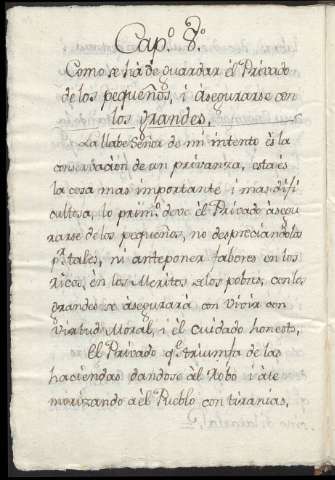 Cap.º 8.º
Como se há de guardar el Privado
de los pequeños, i asegurarse con
los grandes.
La llabe Señor de mi intento es la
conserbación de un privanza, esta es
la cosa mas importante i mas difi
cultosa, lo prim.º deve el Privado asegu
rarse de los pequeños, no despreciandolos
p.r tales, ni anteponer fabores en los
ricos, en los Meritos a los pobres, con los
grandes se asegurará con Vivir con
Virtud Moral, i el cuidado honesto,
El Privado q.e triumfa de las
haciendas dandose àl Robo i ate
morizando a èl Pueblo con tiranias,